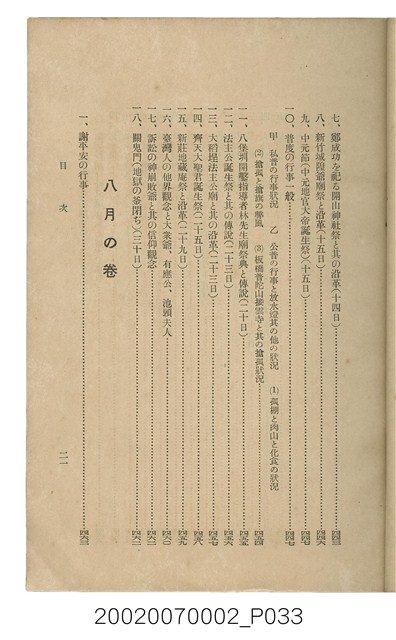 七、鄭成功を祀る開山神社祭と其の沿革(十四日)
八、新竹城隍爺廟祭と沿革(十五日)
九、中元節(中元地官大帝誕生祭)(十五日)
一〇、普度の行事一般
甲 私普の行事狀況 乙 公普の行事と放水燈其の他の狀況 (1) 孤棚と肉山と化食の狀況
(2) 搶孤と搶旗の弊風 (3) 板橋普陀山接雲寺と其の搶孤狀況
一一、八堡圳開鑿指導者林先生廟祭典と傳說(二十日)
一二、法主公誕生祭と其の傳說(二十三日)
一三、大稻埕法主公廟と其の沿革(二十三日)
一四、齊天大聖君誕生祭(二十五日)
一五、新莊地藏庵祭と沿革(二十九日)
一六、臺灣人の他界觀念と大衆爺、有應公、池頭夫人
一七、訴訟の神嶽敗爺と其の信仰觀念
一八、關鬼門(地獄の釜閉ぢ)(三十日)
八月の卷
一、謝平安の行事
目次
二一
20020070002_P033